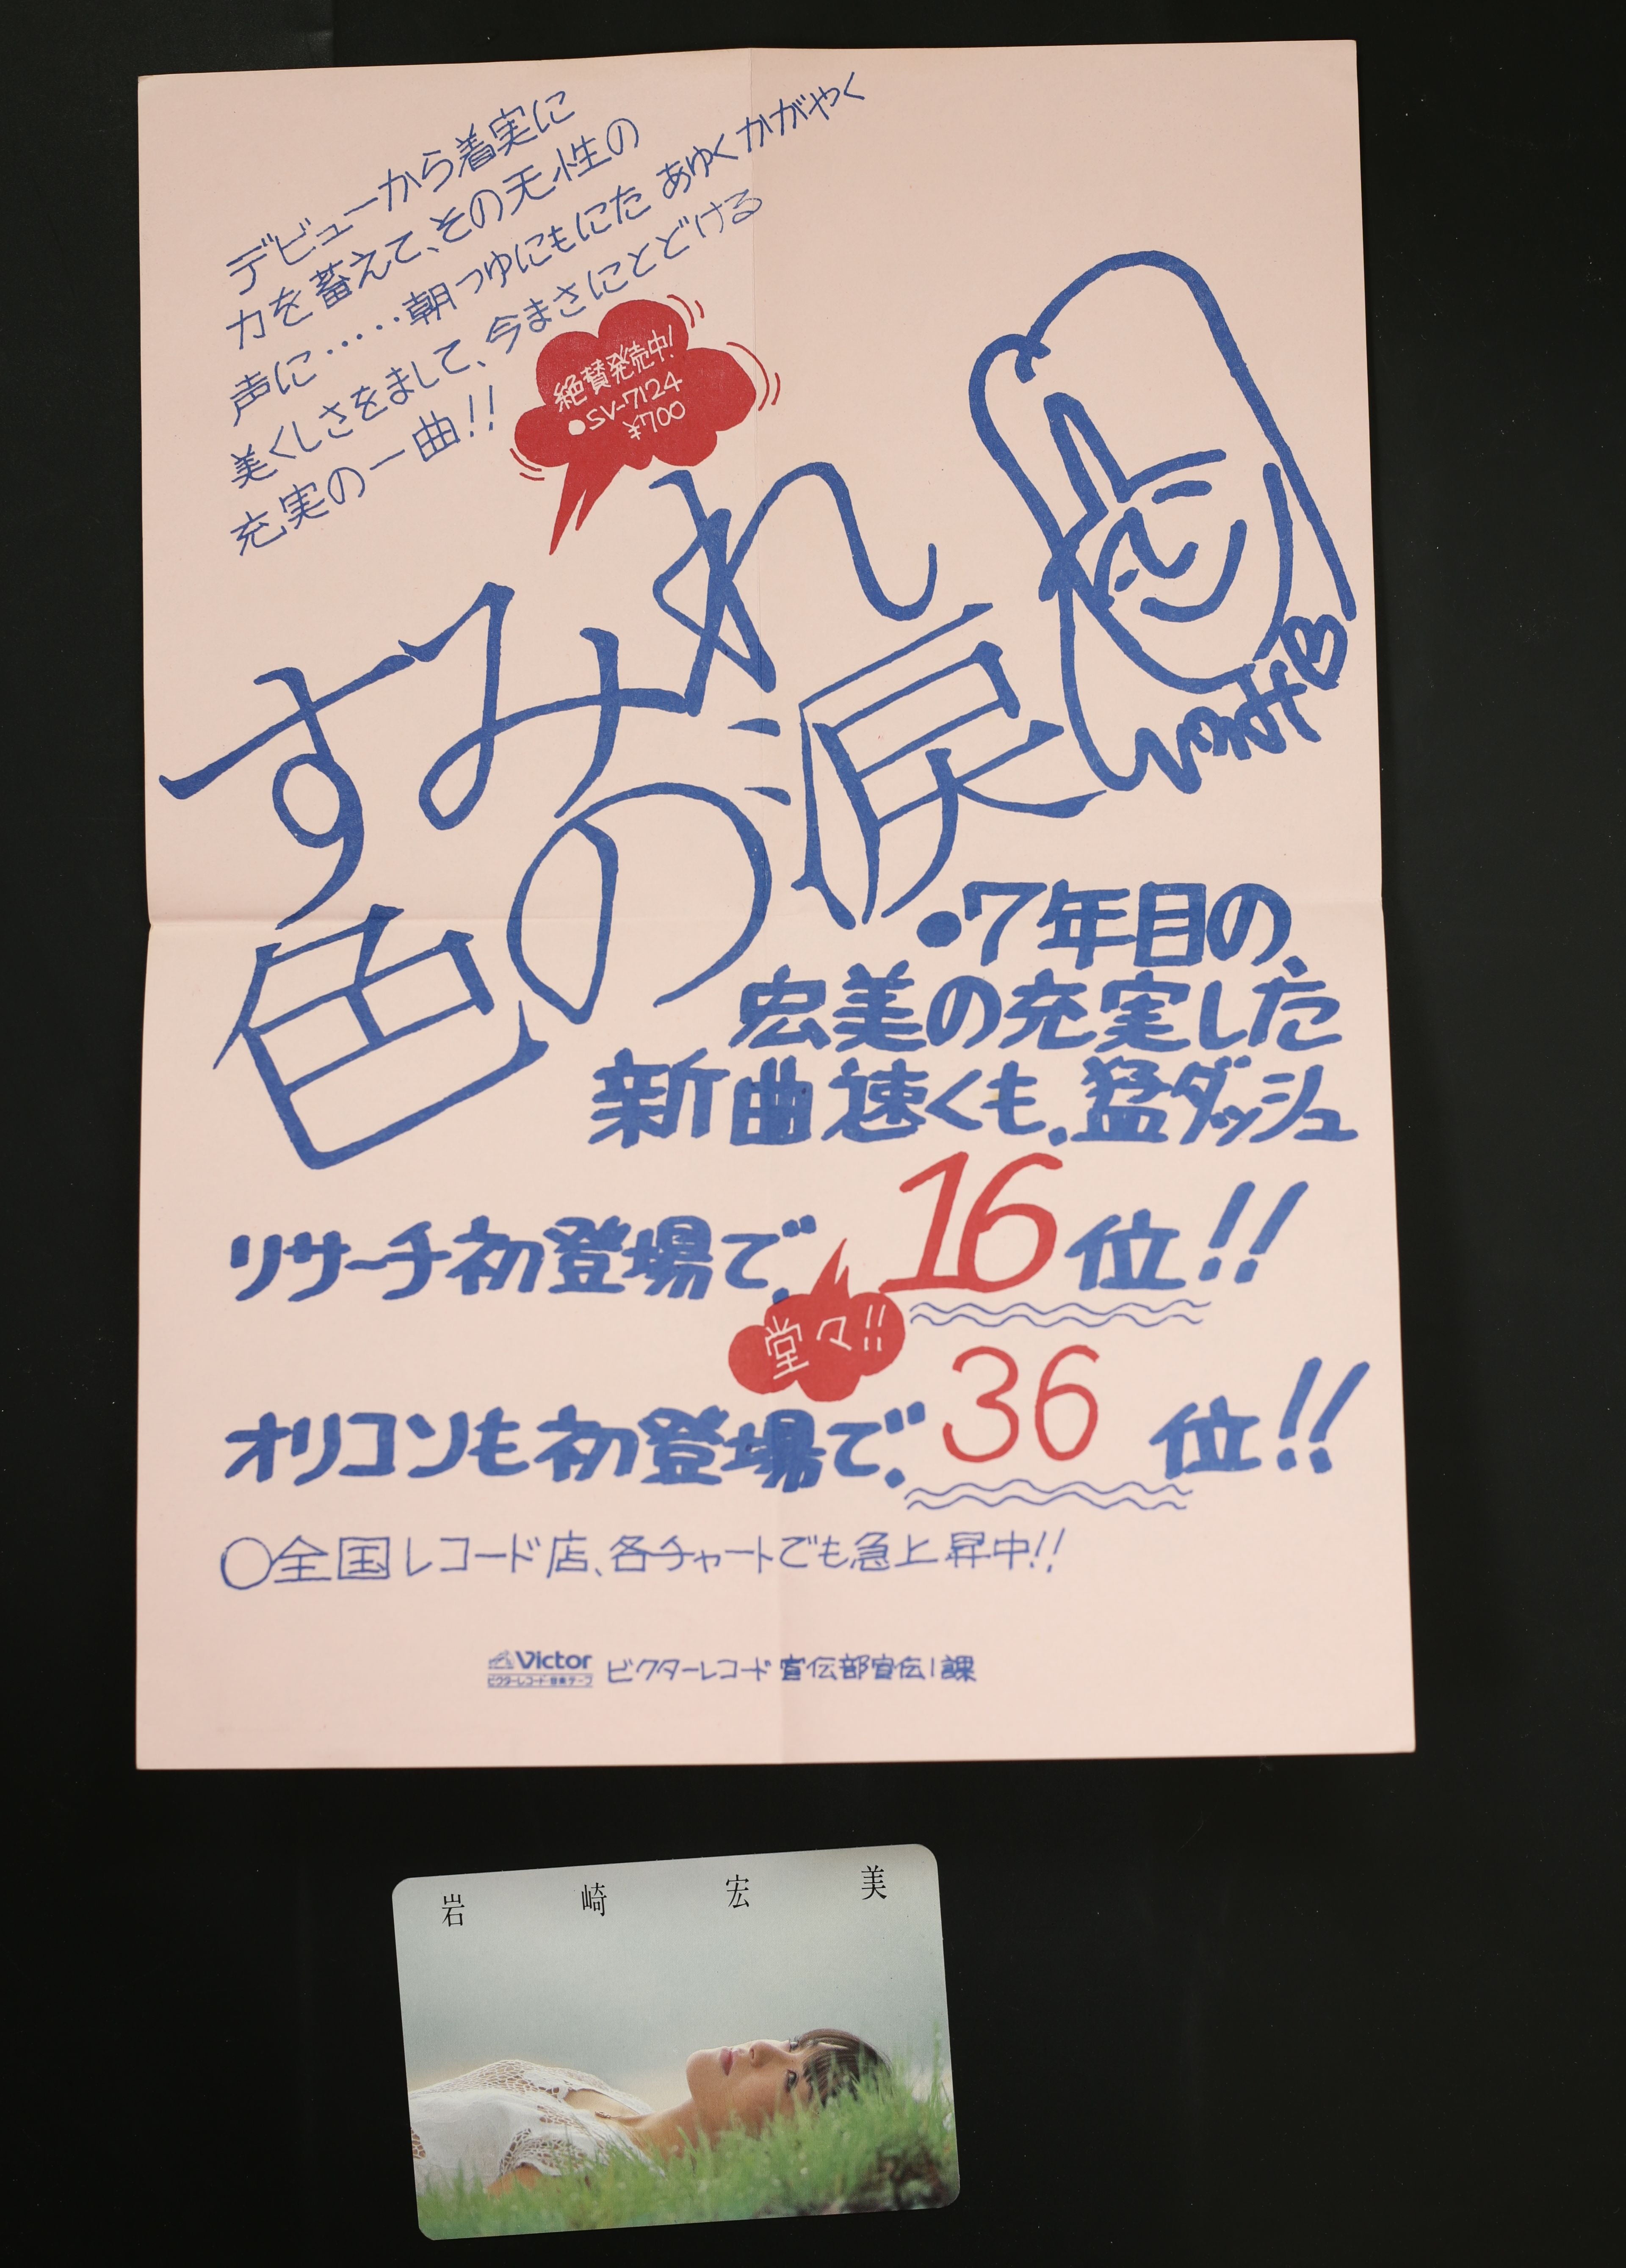 デビューから着実に
力を蓄えて、その天性の
声に‥‥‥朝つゆにもにた あゆくかがやく
美くしさをまして、今まさにとどける
充実の一曲!!
絶賛発売中!
●SV-7124
¥700
すみれ
色の涙
ひろみ
●7年目の、
宏美の充実した
新曲速くも、猛ダッシュ
リサーチ初登場で、16位!!
堂々!!
オリコンも初登場で、36位!!
○全国レコード店、各チャートでも急上昇中!!
Victor
ビクターレコード・音楽テープ
ビクターレコード 宣伝部宣伝1課
岩崎宏美